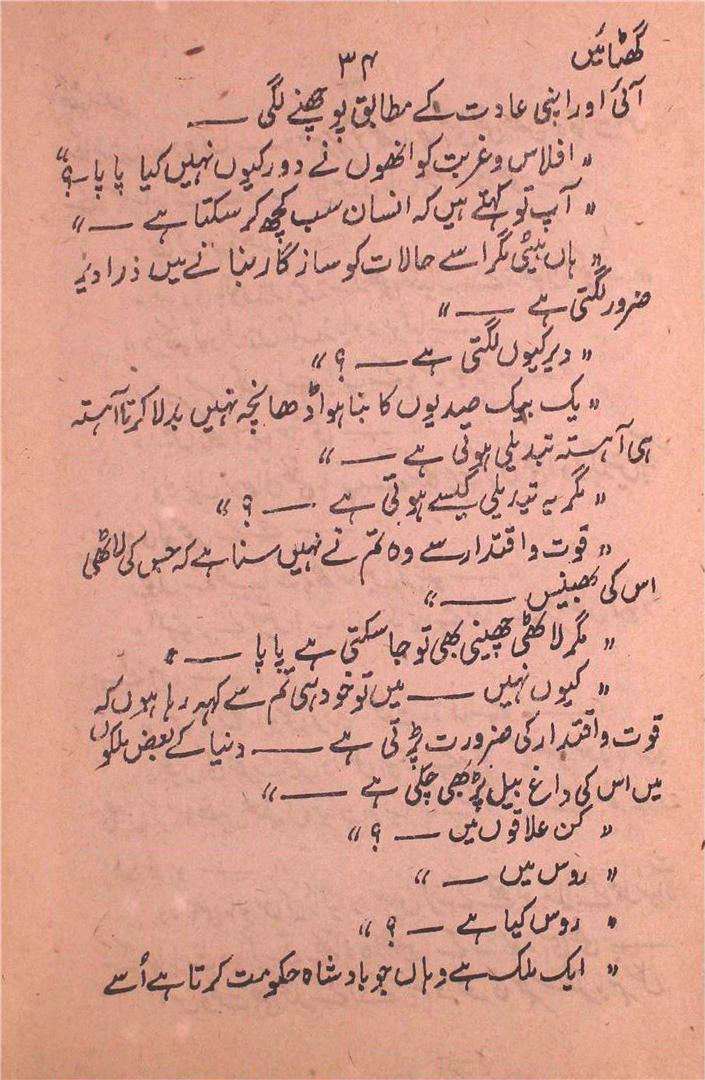 گھٹائیں
۳۴
آئی اور اپنی عادت کے مطابق پوچھنے لگی ——
” افلاس و غربت کو انھوں نے دور کیوں نہیں کیا پاپا —؟“
” آپ تو کہتے ہیں کہ انسان سب کچھ کر سکتا ہے —“
” ہاں بیٹی مگر اسے حالات کو سازگار بنانے میں ذرا دیر
ضرور لگتی ہے ——“
” دیر کیوں لگتی ہے ——؟“
” یک بیک صدیوں کا بنا ہوا ڈھانچہ نہیں بدلا کرتا آہستہ
ہی آہستہ تبدیلی ہوتی ہے ——“
” مگر یہ تبدیلی کیسے ہوتی ہے ——؟“
” قوت و اقتدار سے وہ تم نے نہیں سنا ہے کہ جس کی لاٹھی
اس کی بھینس ——“
” مگر لاٹھی چھینی بھی تو جا سکتی ہے پاپا ——“
” کیوں نہیں —— میں تو خود ہی تم سے کہہ رہا ہوں کہ
قوت و اقتدار کی ضرورت پڑتی ہے —— دنیا کے بعض ملکوں
میں اس کی داغ بیل پڑ بھی چکی ہے ——“
” کن علاقوں میں —؟“
” روس میں ——“
” روس کیا ہے —؟“
” ایک ملک ہے وہاں جو بادشاہ حکومت کرتا ہے اُسے